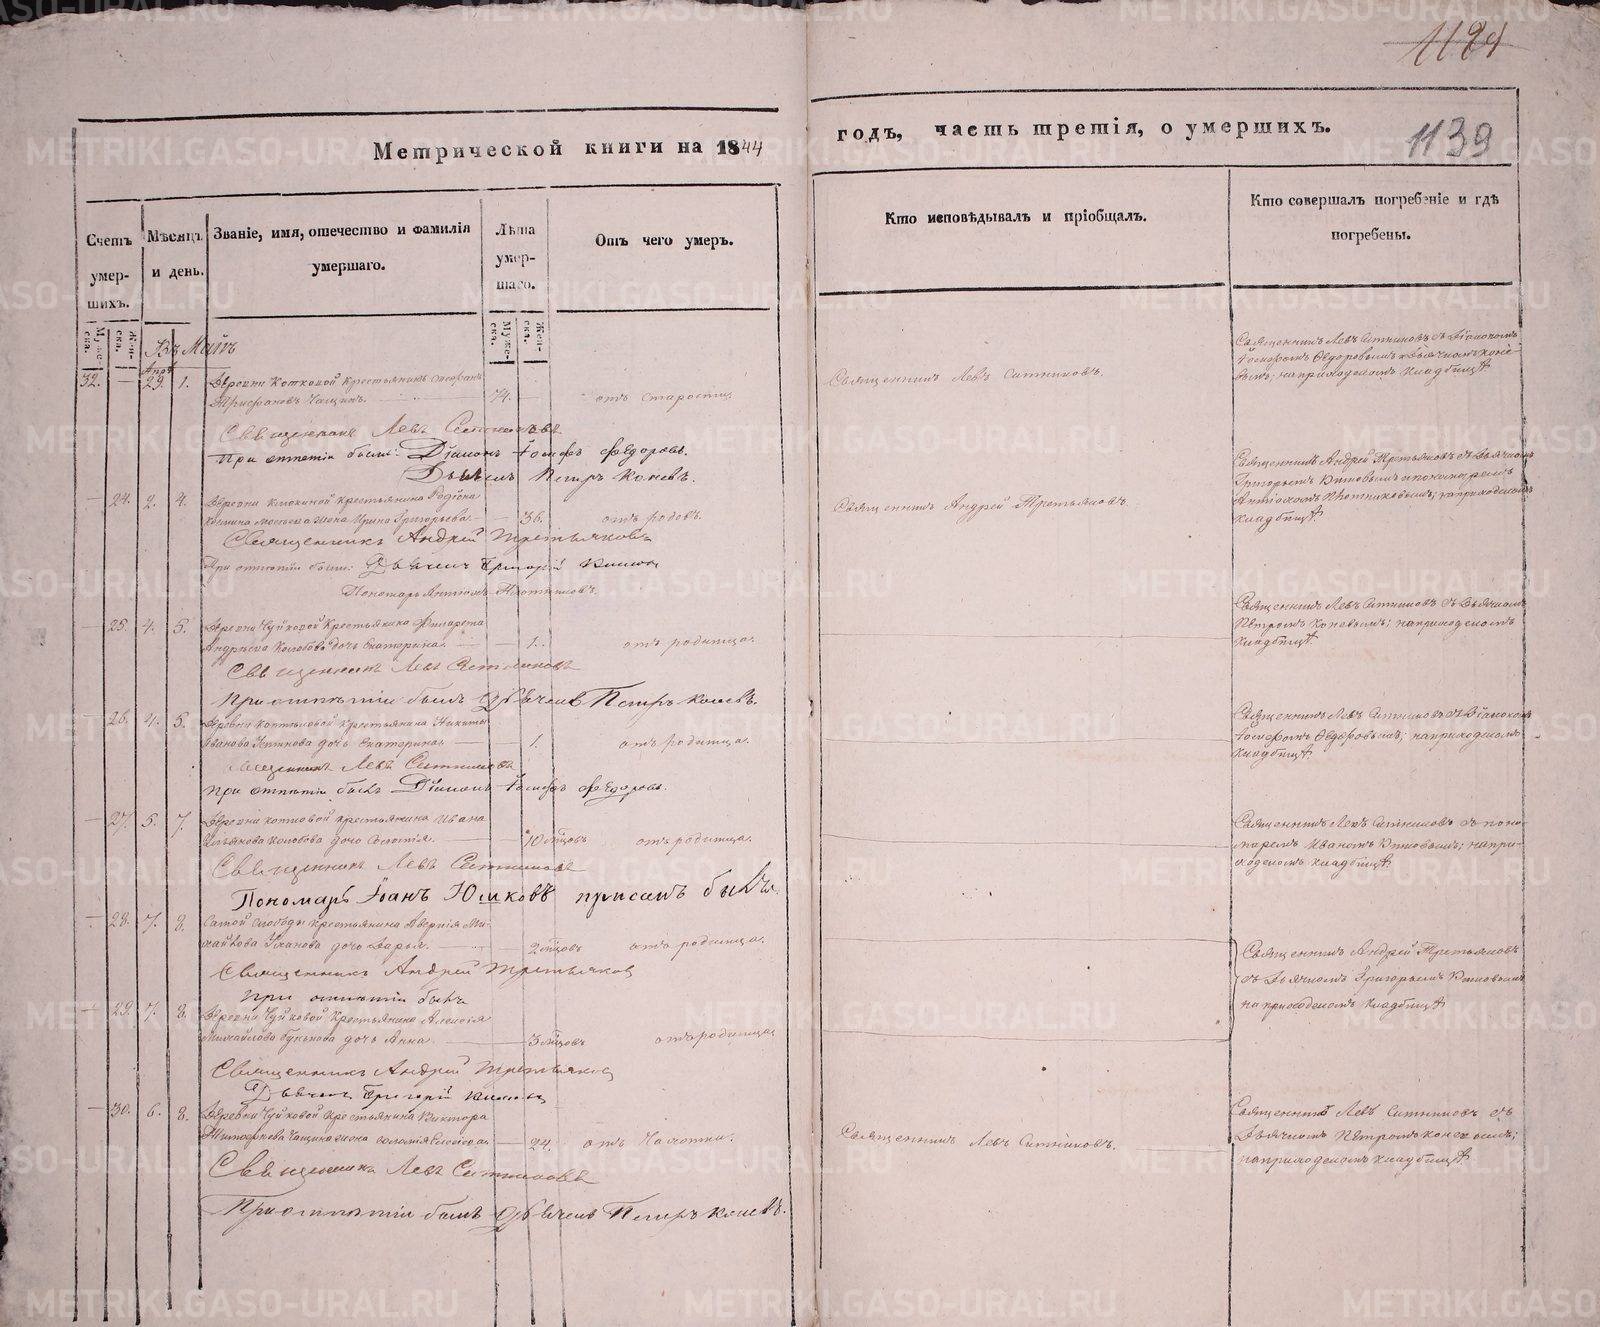 1181
Метрической книги на 1844
годъ, часть третія, о умершихъ.
1139
Счетъ умер-шихъ.
Мѣсяцъ и день.
Званіе, имя, отечество и фамилія умершаго.
Лѣта умер-шаго.
Отъ чего умеръ.
Кто исповѣдывалъ и пріобщалъ.
Кто совершалъ погребеніе и гдѣ погребены.
Муже-ска.
Жен-ска.
Муже-ска.
Жен-ска.
Въ Маѣ
Апрѣ
32. — 29. 1. Деревни Котковой крестьянинъ
Трифановъ Чащинъ. 74. — отъ старости
Священникъ Левъ Ситниковъ.
Священникъ Левъ Ситниковъ съ Діакономъ
Іосифомъ Ѳедоровымъ и Дьячкомъ Коне-
вымъ; на приходскомъ кладбищѣ
Священникъ Левъ Ситниковъ
При отпѣтіи были: Діаконъ Іосифъ Ѳедоровъ.
Дьячекъ Петръ Коневъ.
— 24. 2. 4. Деревни крестьянина Родіона
жена Ирина Григорьева. — 36. отъ родовъ.
Священникъ Андрей Третьяковъ.
Священникъ Андрей Третьяковъ съ Дьячкомъ
Григорьемъ и пономаремъ
Плотниковымъ; на приходскомъ
кладбищѣ
Священникъ Андрей Третьяковъ
При отпѣтіи были: Дьячекъ Григорій
Пономарь Плотниковъ.
— 25. 4. 5. Деревни Чуйковой крестьянина Филарета
Андреева Колобова дочь Екатерина. — 1. отъ родимца.
Священникъ Левъ Ситниковъ съ Дьячкомъ
Петромъ Коневымъ; на приходскомъ
кладбищѣ
Священникъ Левъ Ситниковъ
При отпѣтіи былъ Дьячекъ Петръ Коневъ.
— 26. 4. 5. Деревни крестьянина Никиты
Иванова дочь Екатерина. — 1. отъ родимца.
Священникъ Левъ Ситниковъ съ Діакономъ
Іосифомъ Ѳедоровымъ; на приходскомъ
кладбищѣ
Священникъ Левъ Ситниковъ
При отпѣтіи былъ Діаконъ Іосифъ Ѳедоровъ.
— 27. 5. 7. Деревни крестьянина Ивана
Колобова дочь — 10 мцовъ отъ родимца.
Священникъ Левъ Ситниковъ съ поно-
маремъ Иваномъ; на при-
ходскомъ кладбищѣ
Священникъ Левъ Ситниковъ
Пономарь Іоанъ Юшковъ при семъ былъ.
— 28. 7. 8. Самой слободы крестьянина Аверкія Ми-
хайлова дочь Дарья. — 2 мцовъ отъ родимца.
Священникъ Андрей Третьяковъ
съ Дьячкомъ Григорьемъ
на приходскомъ кладбищѣ
Священникъ Андрей Третьяковъ
При отпѣтіи былъ
— 29. 7. 8. Деревни Чуйковой крестьянина Алексія
Михайлова дочь Анна. — 3 мцовъ отъ родимца
Священникъ Андрей Третьяковъ
Дьячекъ Григорій
— 30. 6. 8. Деревни Чуйковой крестьянина Виктора
Чащина жена — 24. отъ Чахотки.
Священникъ Левъ Ситниковъ.
Священникъ Левъ Ситниковъ съ
Дьячкомъ Петромъ Коневымъ;
на приходскомъ кладбищѣ
Священникъ Левъ Ситниковъ
При отпѣтіи былъ Дьячекъ Петръ Коневъ.
METRIKI.GASO-URAL.RU